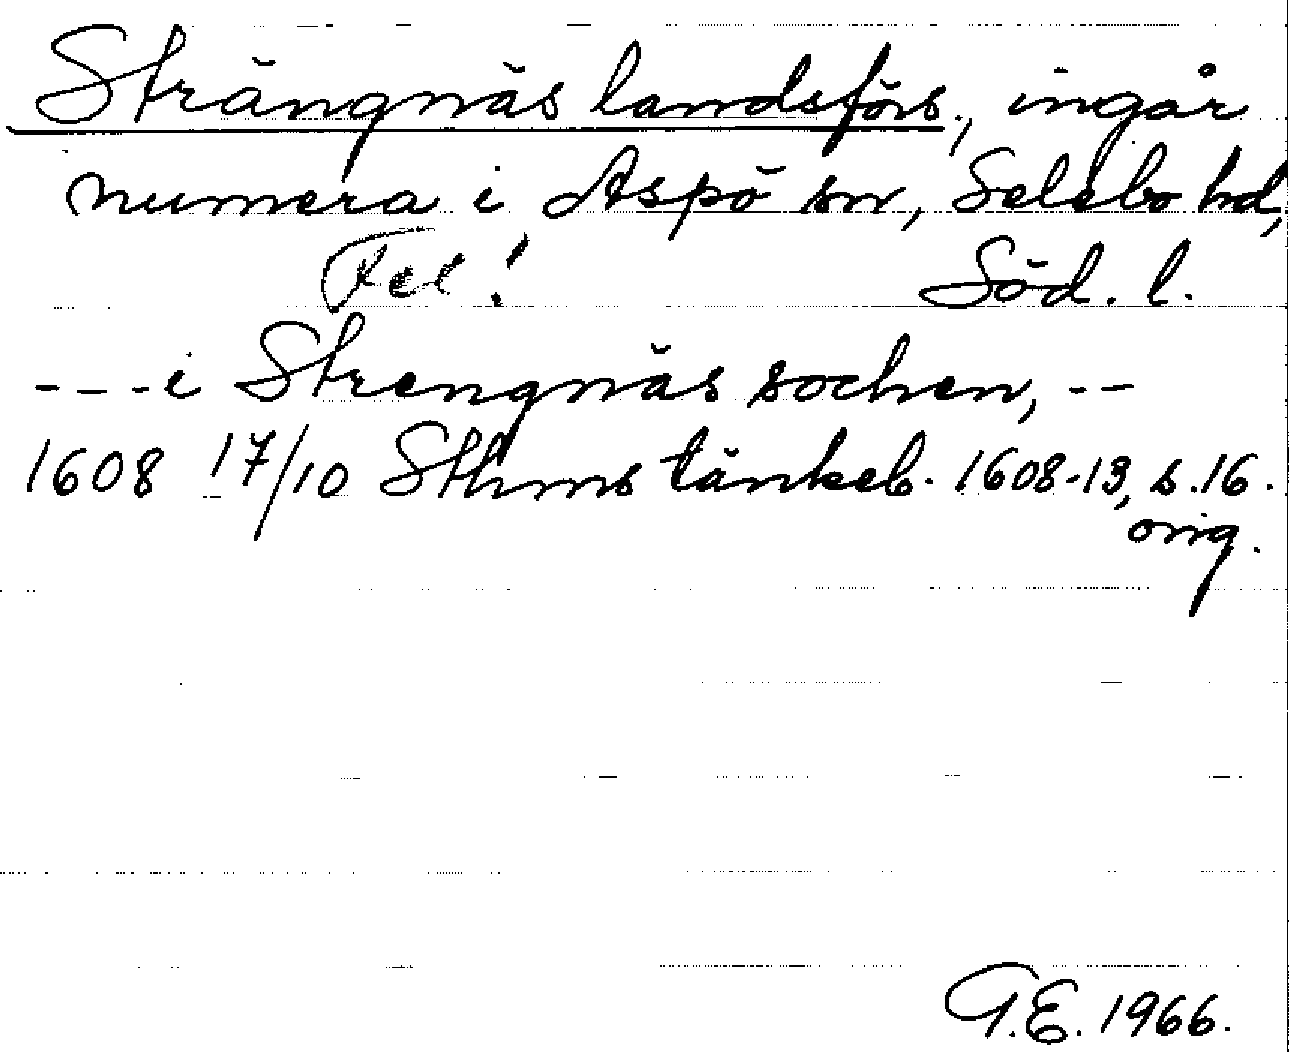 Strängnäs landsförs., ingår
numera i Aspö sn, Selebo hd,
Fel! Söd. l.
- - - i Strengnäs sochen, - -
1608 17/10 Sthms tänkeb. 1608-13, s. 16.
orig.
G.E. 1966.